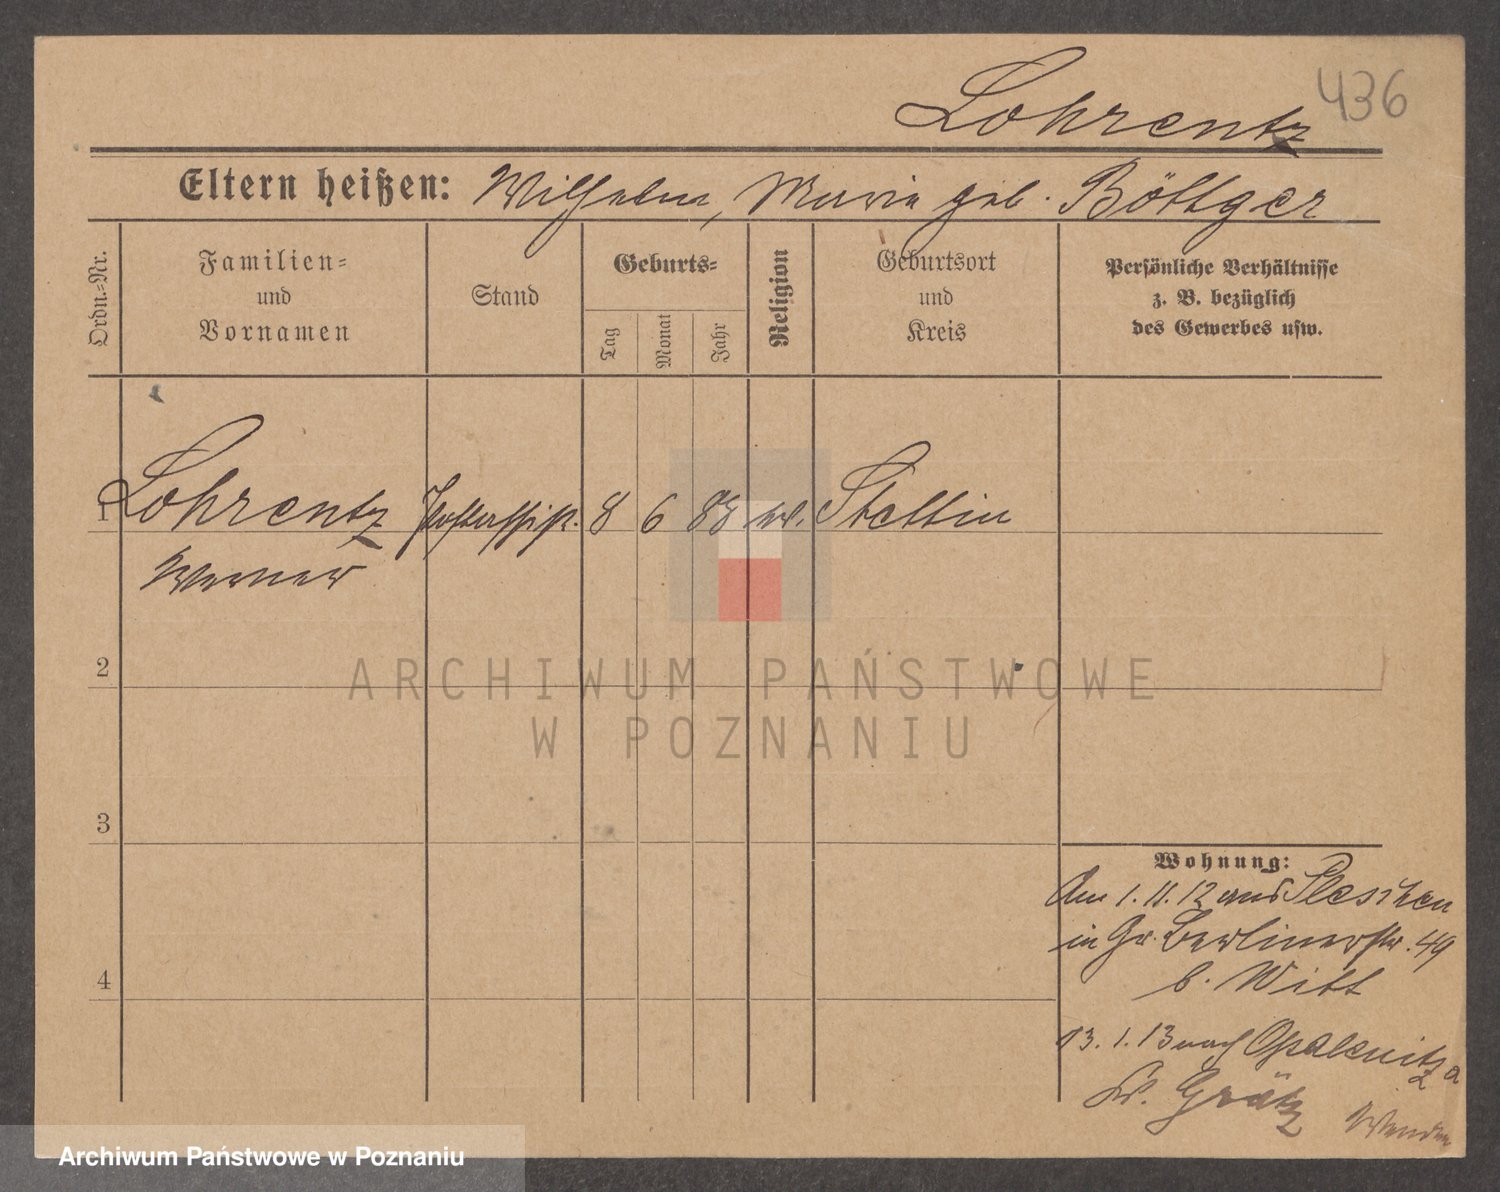 436
Lohrentz
Eltern heißen: Wilhelm, Marie geb. Böttger
Ordn.=Nr.
Familien=
und
Vornamen
Stand
Geburts=
Tag
Monat
Jahr
Religion
Geburtsort
und
Kreis
Persönliche Verhältnisse
z. B. bezüglich
des Gewerbes usw.
1
Lohrentz Postassist. 8 6 88 ev. Stettin
Werner
2
ARCHIWUM PAŃSTWOWE
W POZNANIU
3
4
Wohnung:
Am 1. 11. 12 aus Pleschen
in Gr. Berlinerstr. 49
b. Witt
13. 1. 13 nach Opalenitza
Kr. Grätz
Wenden
Archiwum Państwowe w Poznaniu